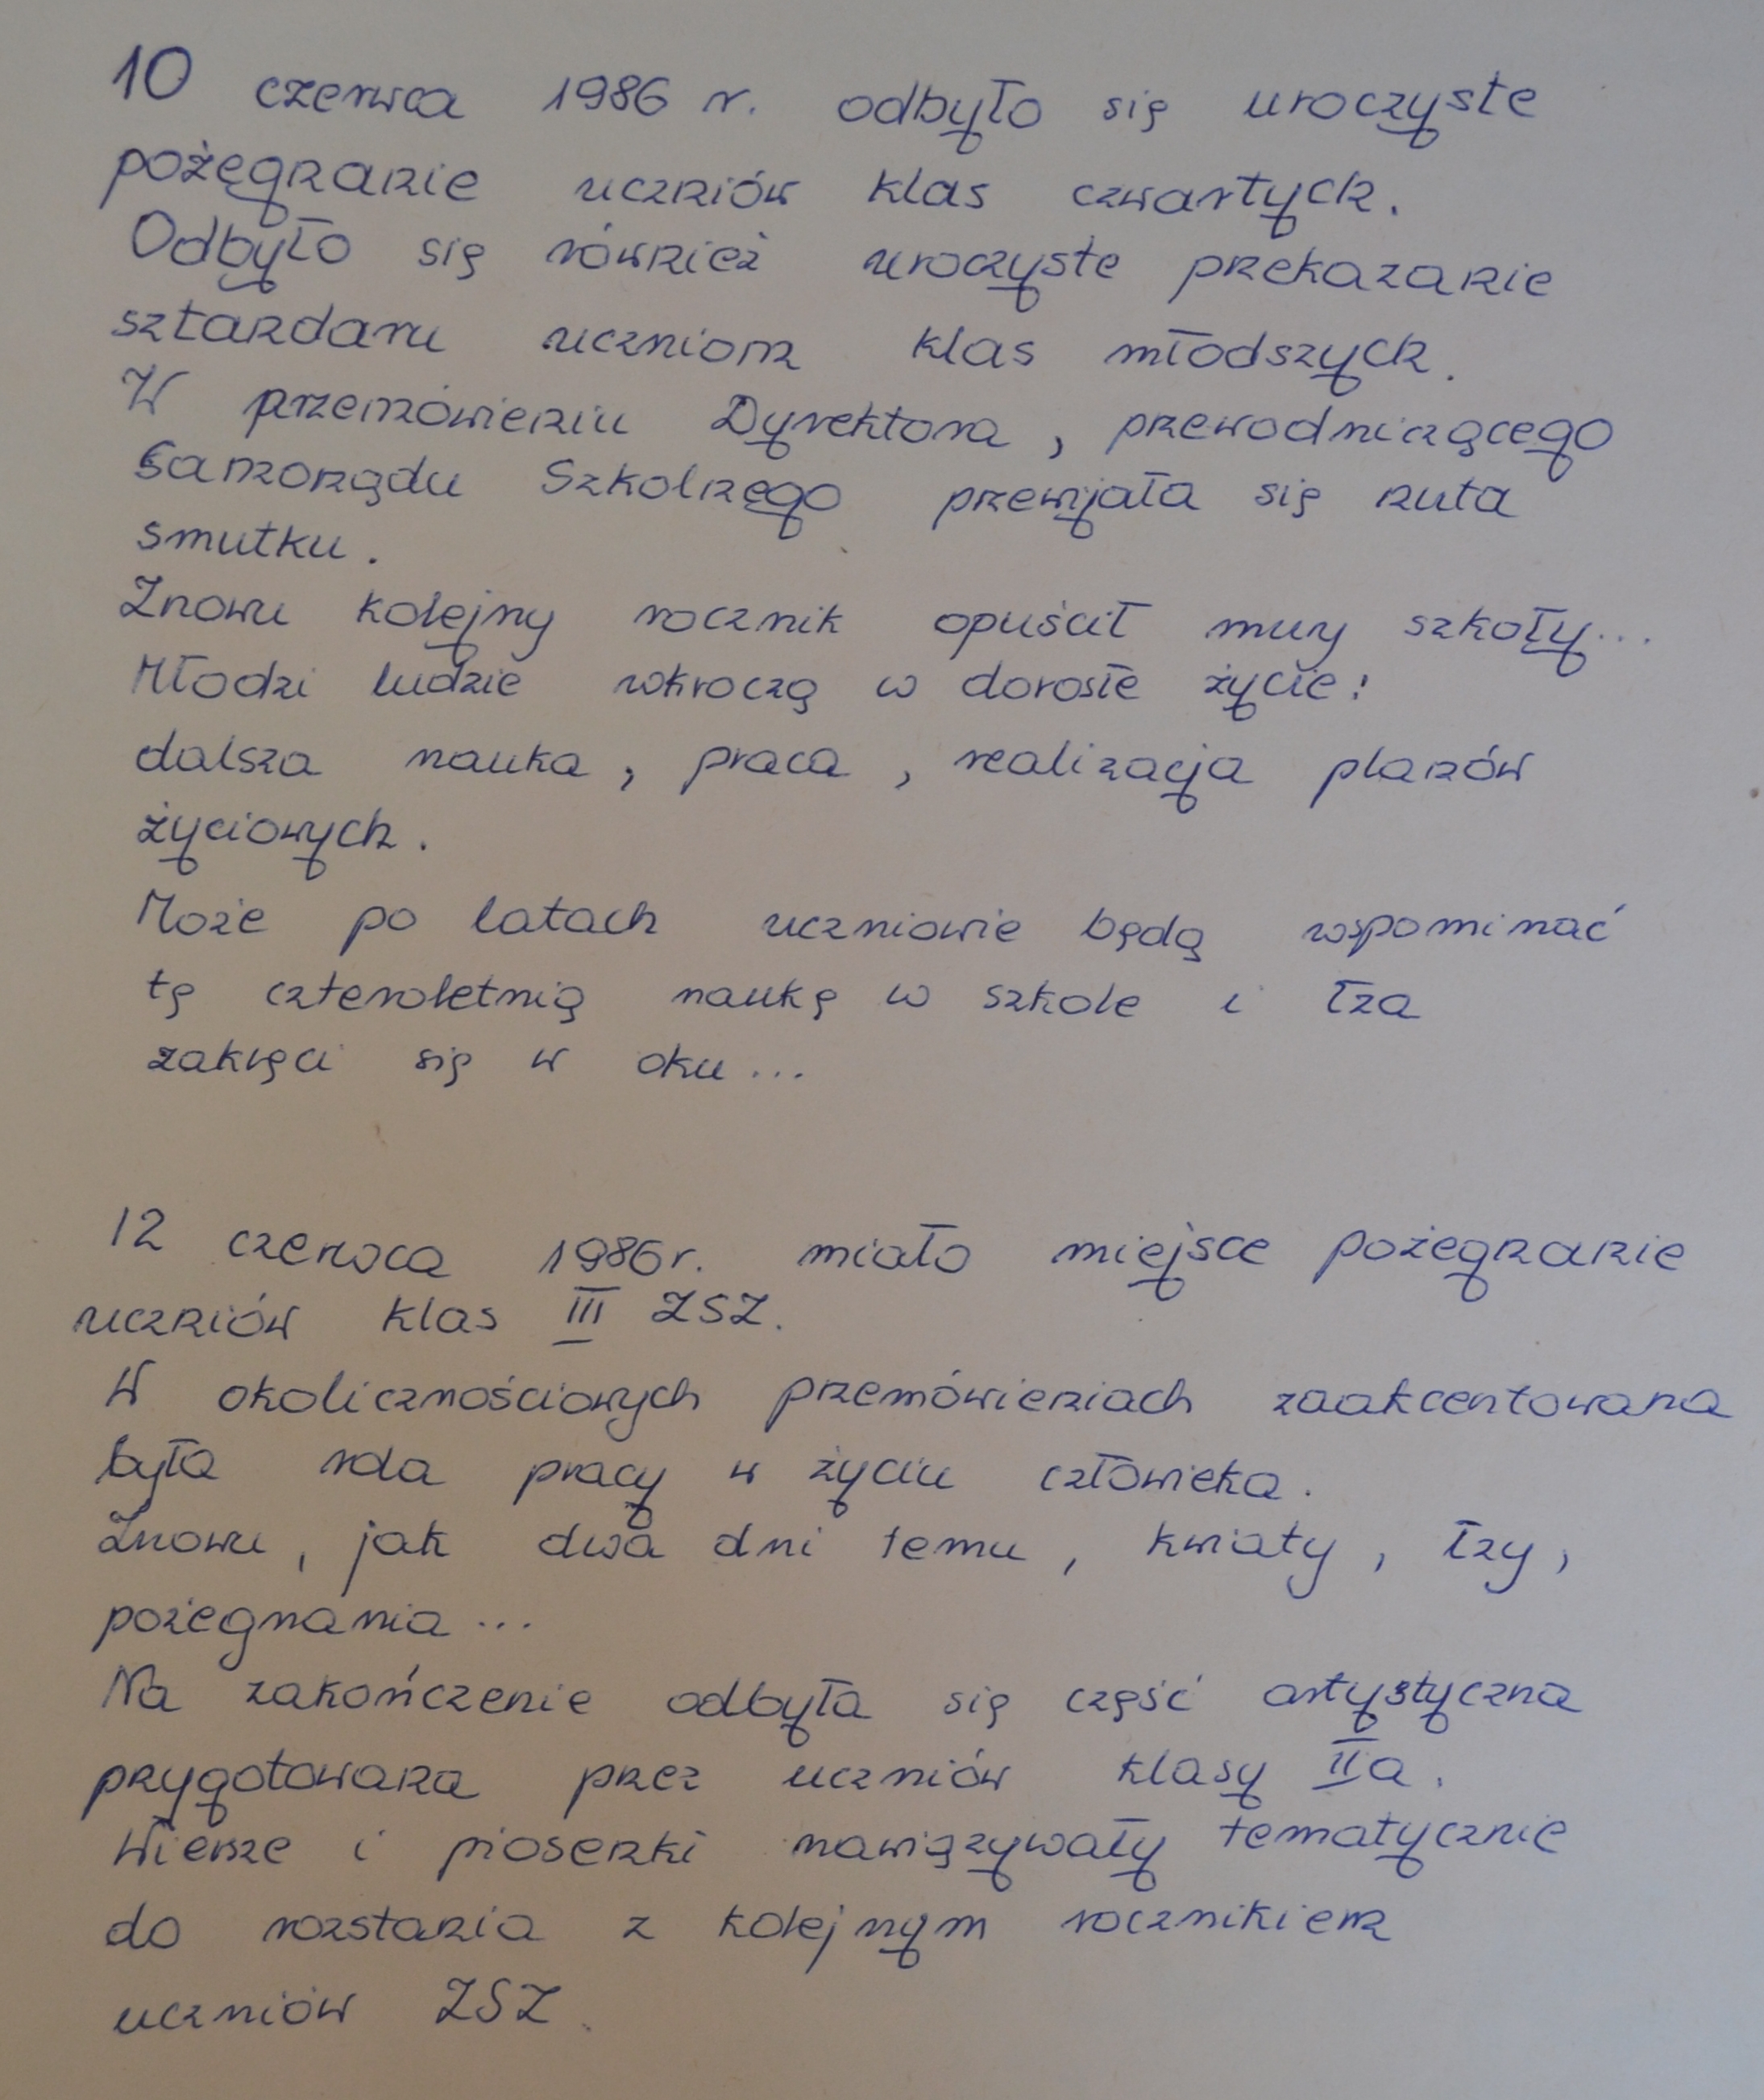 10 czerwca 1986 r. odbyło się uroczyste
pożęgnanie uczniów klas czwartych.
Odbyło się również uroczyste przekazanie
sztandaru uczniom klas młodszych.
W przemówieniu Dyrektora, przewodniczącego
Samorządu Szkolnego przewijała się nuta
smutku.
Znowu kolejny rocznik opuścił mury szkoły...
Młodzi ludzie wkroczą w dorosłe życie:
dalsza nauka, praca, realizacja planów
życiowych.
Może po latach uczniowie będą wspominać
tę czteroletnią naukę w szkole i łza
zakręci się w oku...
12 czerwca 1986r. miało miejsce pożegnanie
uczniów klas III ZSZ.
W okolicznościowych przemówieniach zaakcentowana
była rola pracy w życiu człowieka.
Znowu, jak dwa dni temu, kwiaty, łzy,
pożegnania...
Na zakończenie odbyła się część artystyczna
przygotowana przez uczniów klasy IIa.
Wiersze i piosenki nawiązywały tematycznie
do rozstania z kolejnym rocznikiem
uczniów ZSZ.